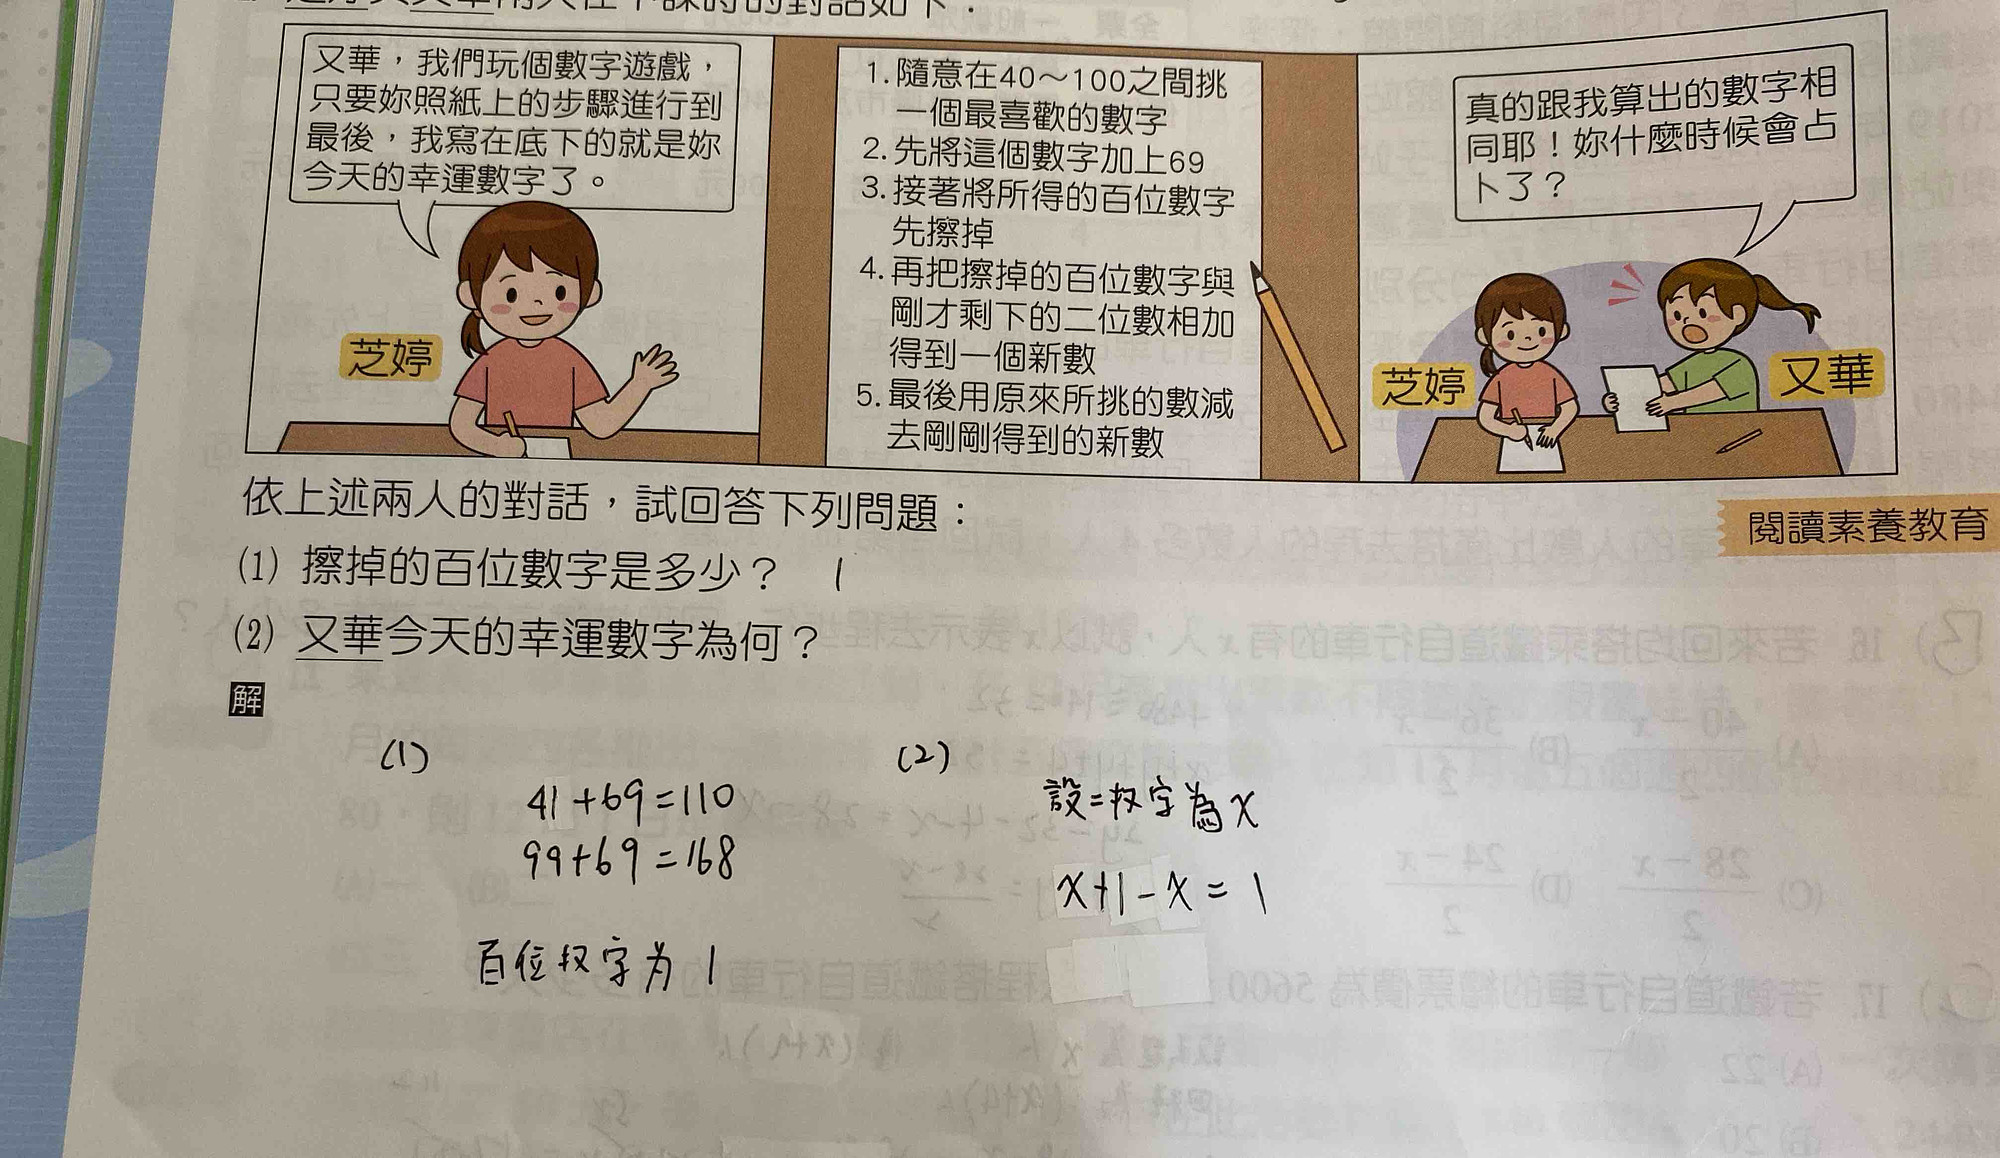 又華，我們玩個數字遊戲，
只要妳照紙上的步驟進行到
最後，我寫在底下的就是妳
今天的幸運數字了。
芝婷
1. 隨意在40～100之間挑
一個最喜歡的數字
2. 先將這個數字加上69
3. 接著將所得的百位數字
先擦掉
4. 再把擦掉的百位數字與
剛才剩下的二位數相加
得到一個新數
5. 最後用原來所挑的數減
去剛剛得到的新數
真的跟我算出的數字相
同耶！妳什麼時候會占
卜了？
芝婷
又華
依上述兩人的對話，試回答下列問題：
閱讀素養教育
(1) 擦掉的百位數字是多少？ 1
(2) 又華今天的幸運數字為何？
解
(1)
41+69=110
99+69=168
百位字为 1
(2)
設=字為x
x+1-x=1